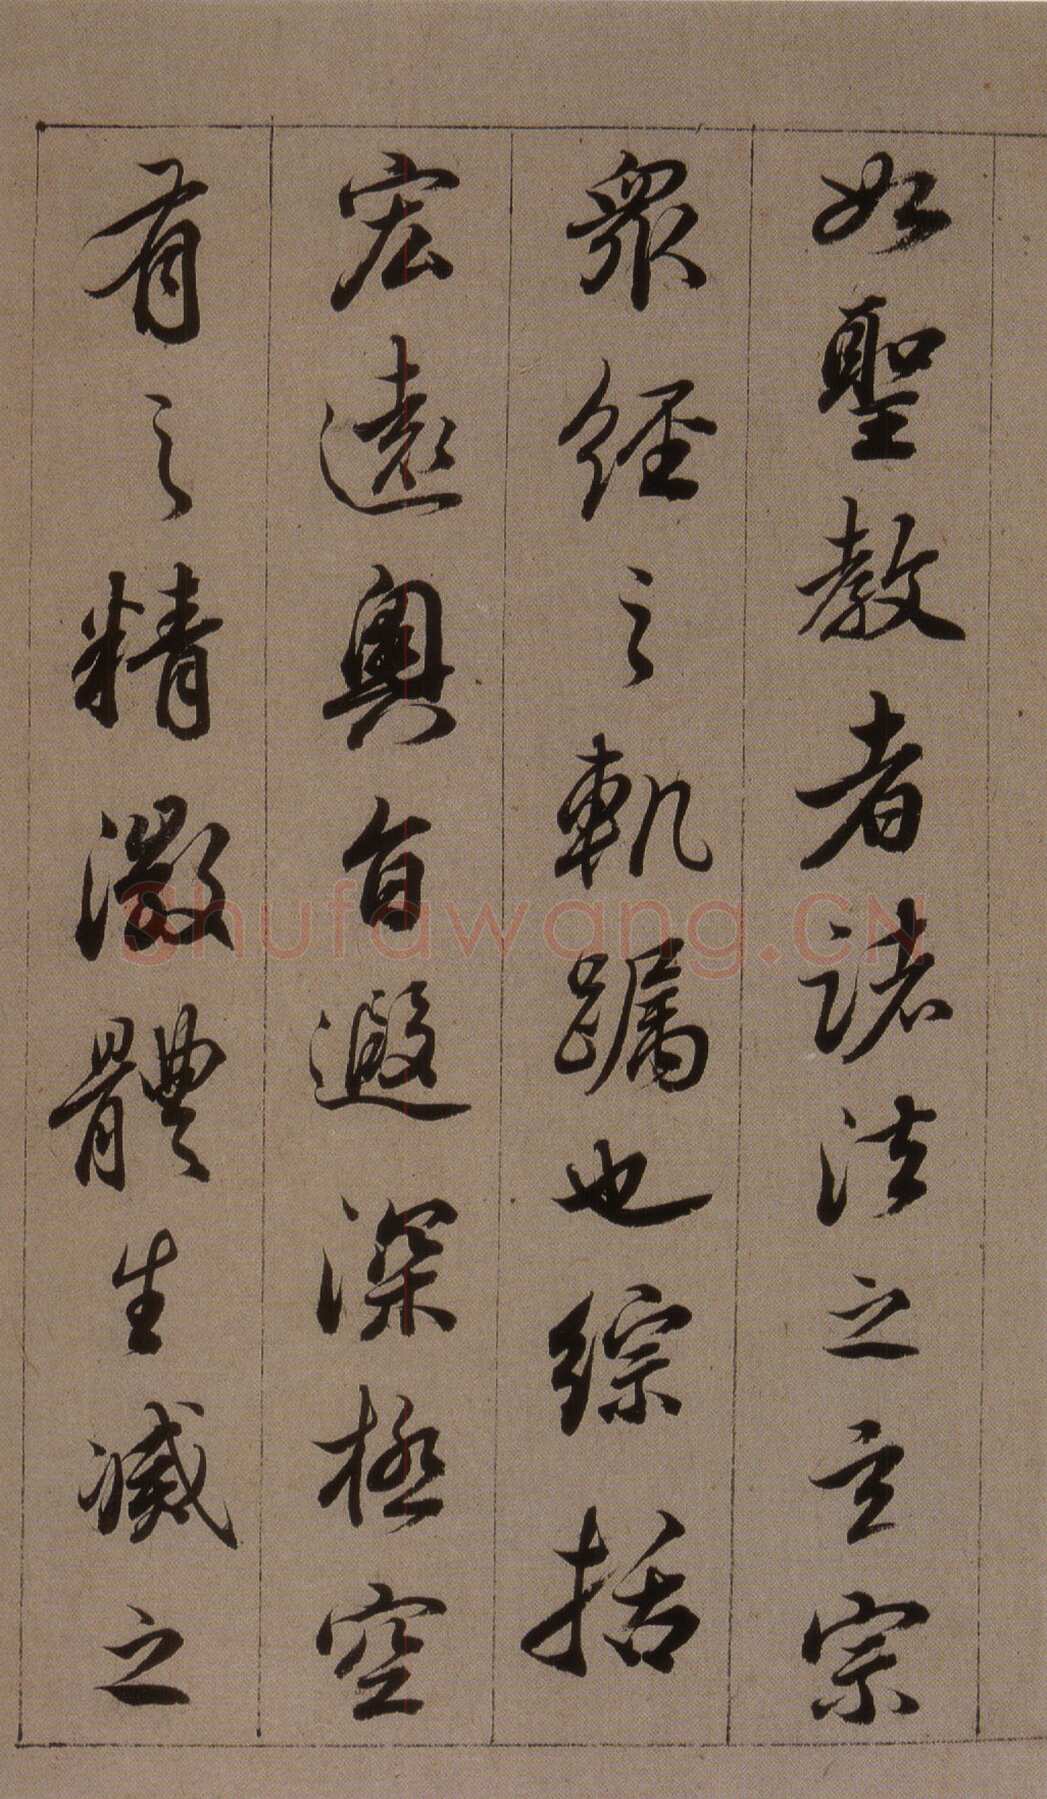 如聖教者諸法之玄宗
眾經之軌躅也綜括
宏遠奧旨遐深極空
有之精微體生滅之
Shufawang.CN